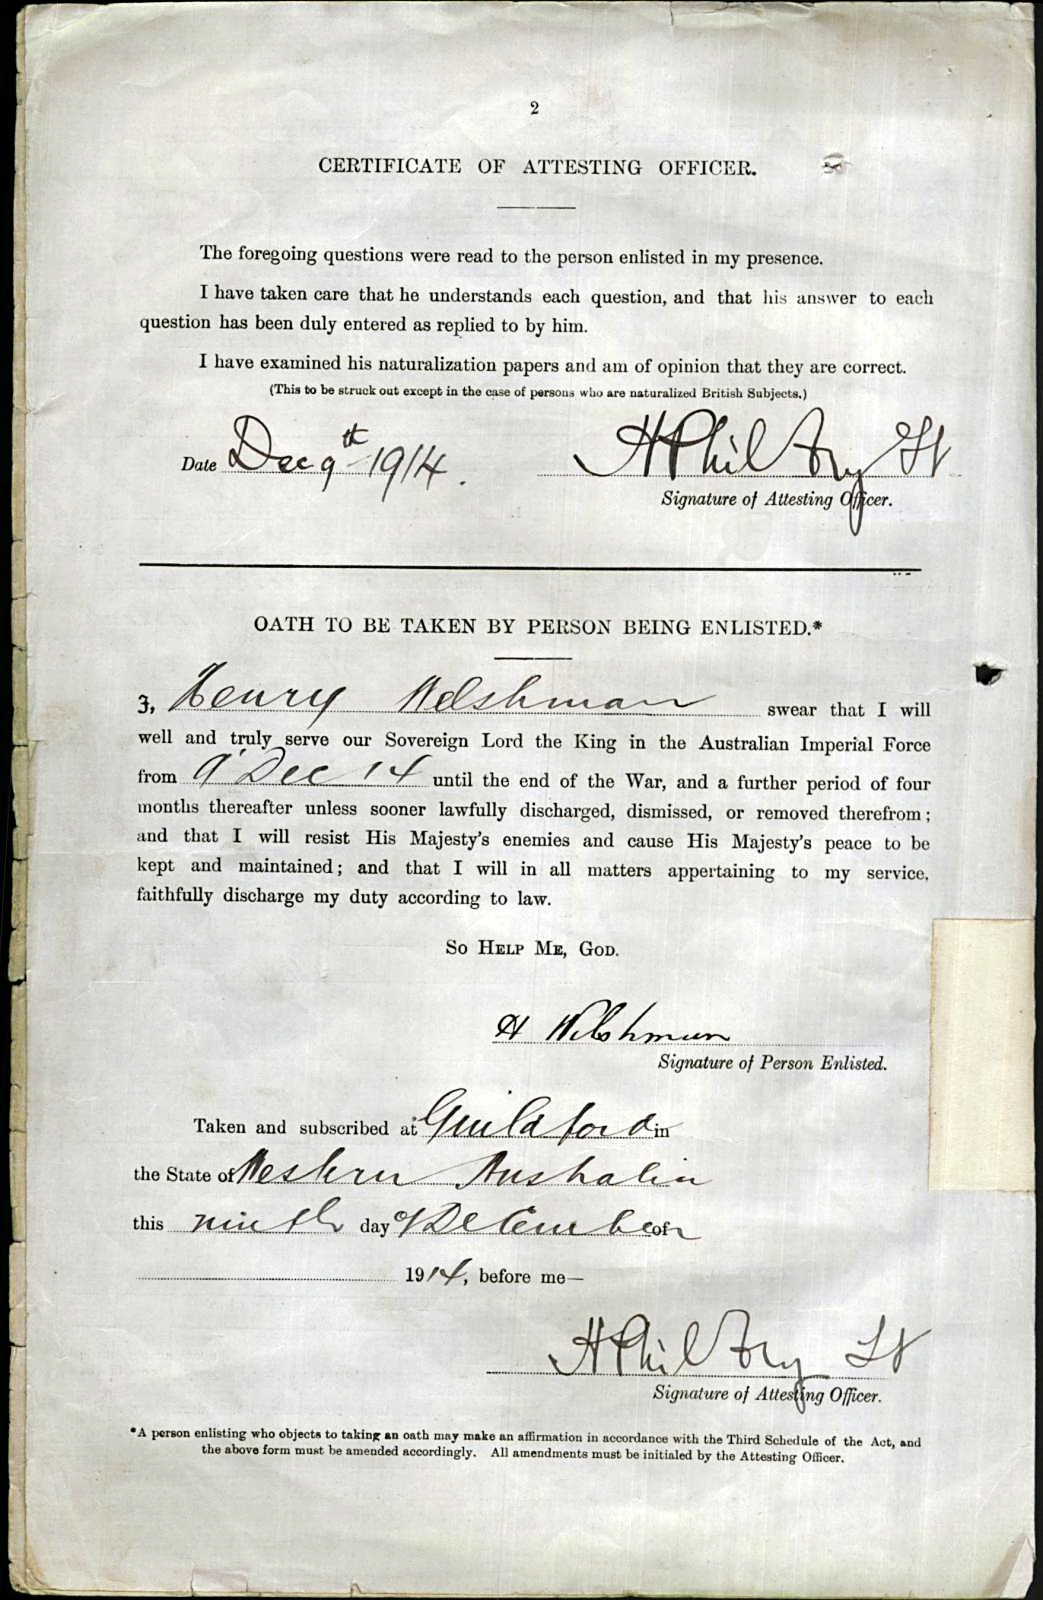 2
CERTIFICATE OF ATTESTING OFFICER.
The foregoing questions were read to the person enlisted in my presence.
I have taken care that he understands each question, and that his answer to each
question has been duly entered as replied to by him.
I have examined his naturalization papers and am of opinion that they are correct.
(This to be struck out except in the case of persons who are naturalized British Subjects.)
Date Dec 9th 1914. H Phil Fry Lt
Signature of Attesting Officer.
OATH TO BE TAKEN BY PERSON BEING ENLISTED.*
I, Henry Welshman swear that I will
well and truly serve our Sovereign Lord the King in the Australian Imperial Force
from 9 Dec 14 until the end of the War, and a further period of four
months thereafter unless sooner lawfully discharged, dismissed, or removed therefrom;
and that I will resist His Majesty's enemies and cause His Majesty's peace to be
kept and maintained; and that I will in all matters appertaining to my service,
faithfully discharge my duty according to law.
So Help Me, God.
H Welshman
Signature of Person Enlisted.
Taken and subscribed at Guildford in
the State of Western Australia
this ninth day of December of
1914, before me—
H Phil Fry Lt
Signature of Attesting Officer.
*A person enlisting who objects to taking an oath may make an affirmation in accordance with the Third Schedule of the Act, and
the above form must be amended accordingly. All amendments must be initialed by the Attesting Officer.